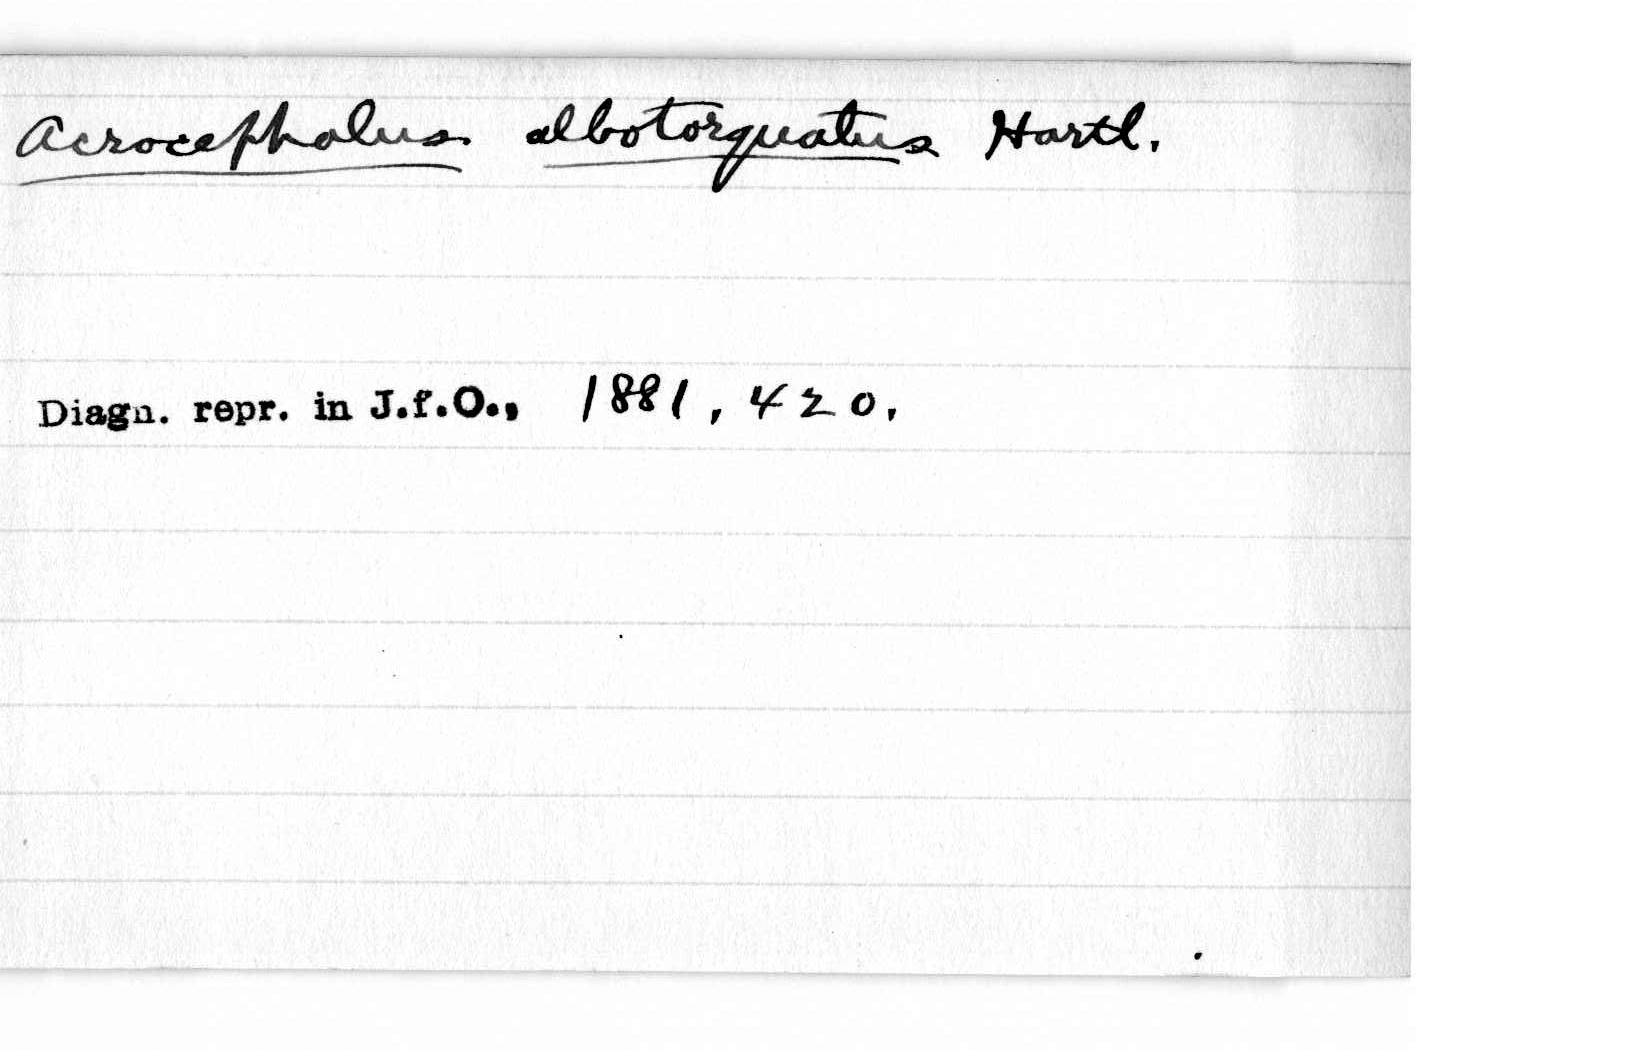 Acrocephalus albotorquatus Hartl.
Diagn. repr. in J.f.O., 1881, 420.